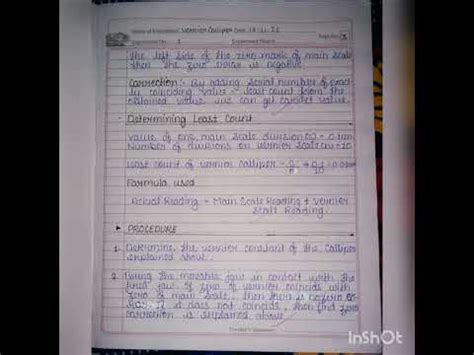 Name of Experiment Vernier Calliper Date
Experiment No. 1 Experiment Result Page No. 3
the left side of the zero mark of main scale
then the zero error is negative.
Correction:- By adding serial number of exact-
ly coinciding value × least count from the
obtained value we can get correct value.
Determining Least Count
Value of one main scale division(s) = 0.1cm
Number of divisions on vernier scale(n) = 10
Least count of vernier calliper = s/n = 0.1/10 = 0.01cm
Formula used
Actual Reading = Main Scale Reading + Vernier
Scale Reading.
PROCEDURE
1. Determine the vernier constant of the calliper
explained above.
2. Bring the movable jaw in contact with the
fixed jaw. If zero of vernier coincids with
zero of main scale, then there is no zero
If it does not coincids, then find zero
correction is explained above.
InShOt